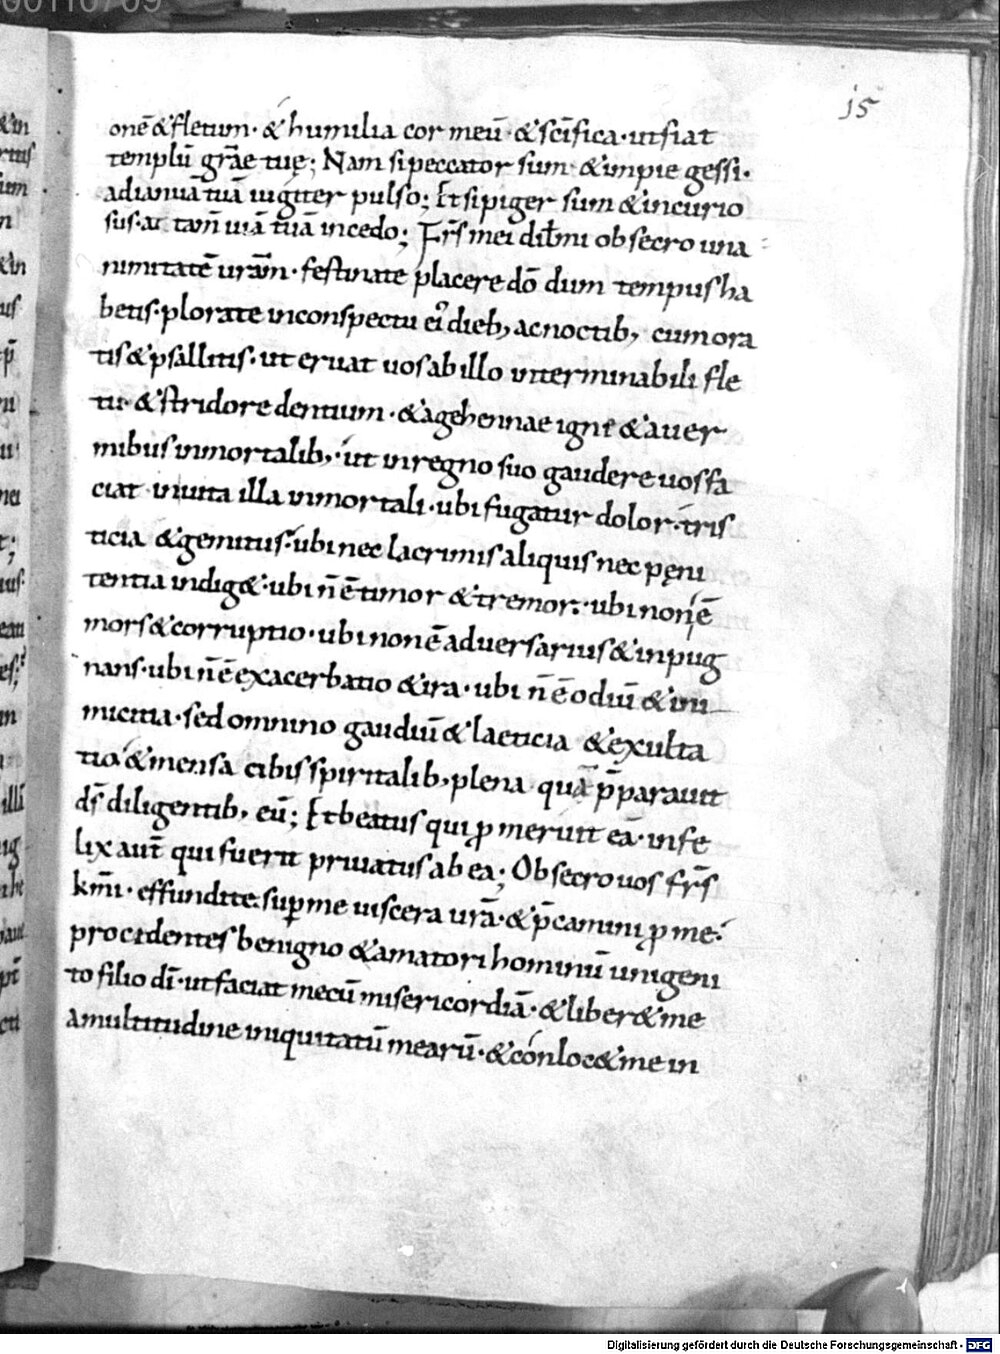 00110709
15
onē & fletum· & humilia cor meū· & sc̄ifica· ut fiat
templū grāe tuę; Nam si peccator sum· & impie gessi·
ad ianuā tuā iugiter pulso; Et si piger sum & incurio
sus· at tam̄ uiā tuā incedo; Fr̄s mei dil̄mi obsecro una
nimitatē uram̄· festinate placere dō dum tempus ha
betis· plorate in conspectu ei᾽ dieb, ac noctib, cum ora
tis & psallitis· ut eruat uos ab illo interminabili fle
tu· & stridore dentium· & a gehennae igne & a uer
mibus inmortalib,· ut in regno suo gaudere uos fa
ciat in uita illa inmortali· ubi fugatur dolor· tris
ticia & gemitus· ubi nec lacrimis aliquis nec pęni
tentia indig&· ubi n̄ ē timor & tremor· ubi non ē
mors & corruptio· ubi non ē aduersarius & inpug
nans· ubi n̄ ē exacerbatio & ira· ubi n̄ ē odiū & ini
micitia· sed omnino gaudiū & laeticia & exulta
tio· & mensa cibis spiritalib, plena quā p̄parauit
ds̄ diligentib, eū; Et beatus qui ꝓmeruit eā· infe
lix aut̄ qui fuerit priuatus ab ea; Obsecro uos fr̄s
km̄i· effundite sup̱ me uiscera urā· & p̄camini ꝓ me·
procidentes benigno & amatori hominū unigeni
to filio dī· ut faciat mecū misericordiā· & liber& me
a multitudine iniquitatū mearū· & conloc& me in
Digitalisierung gefördert durch die Deutsche Forschungsgemeinschaft - DFG